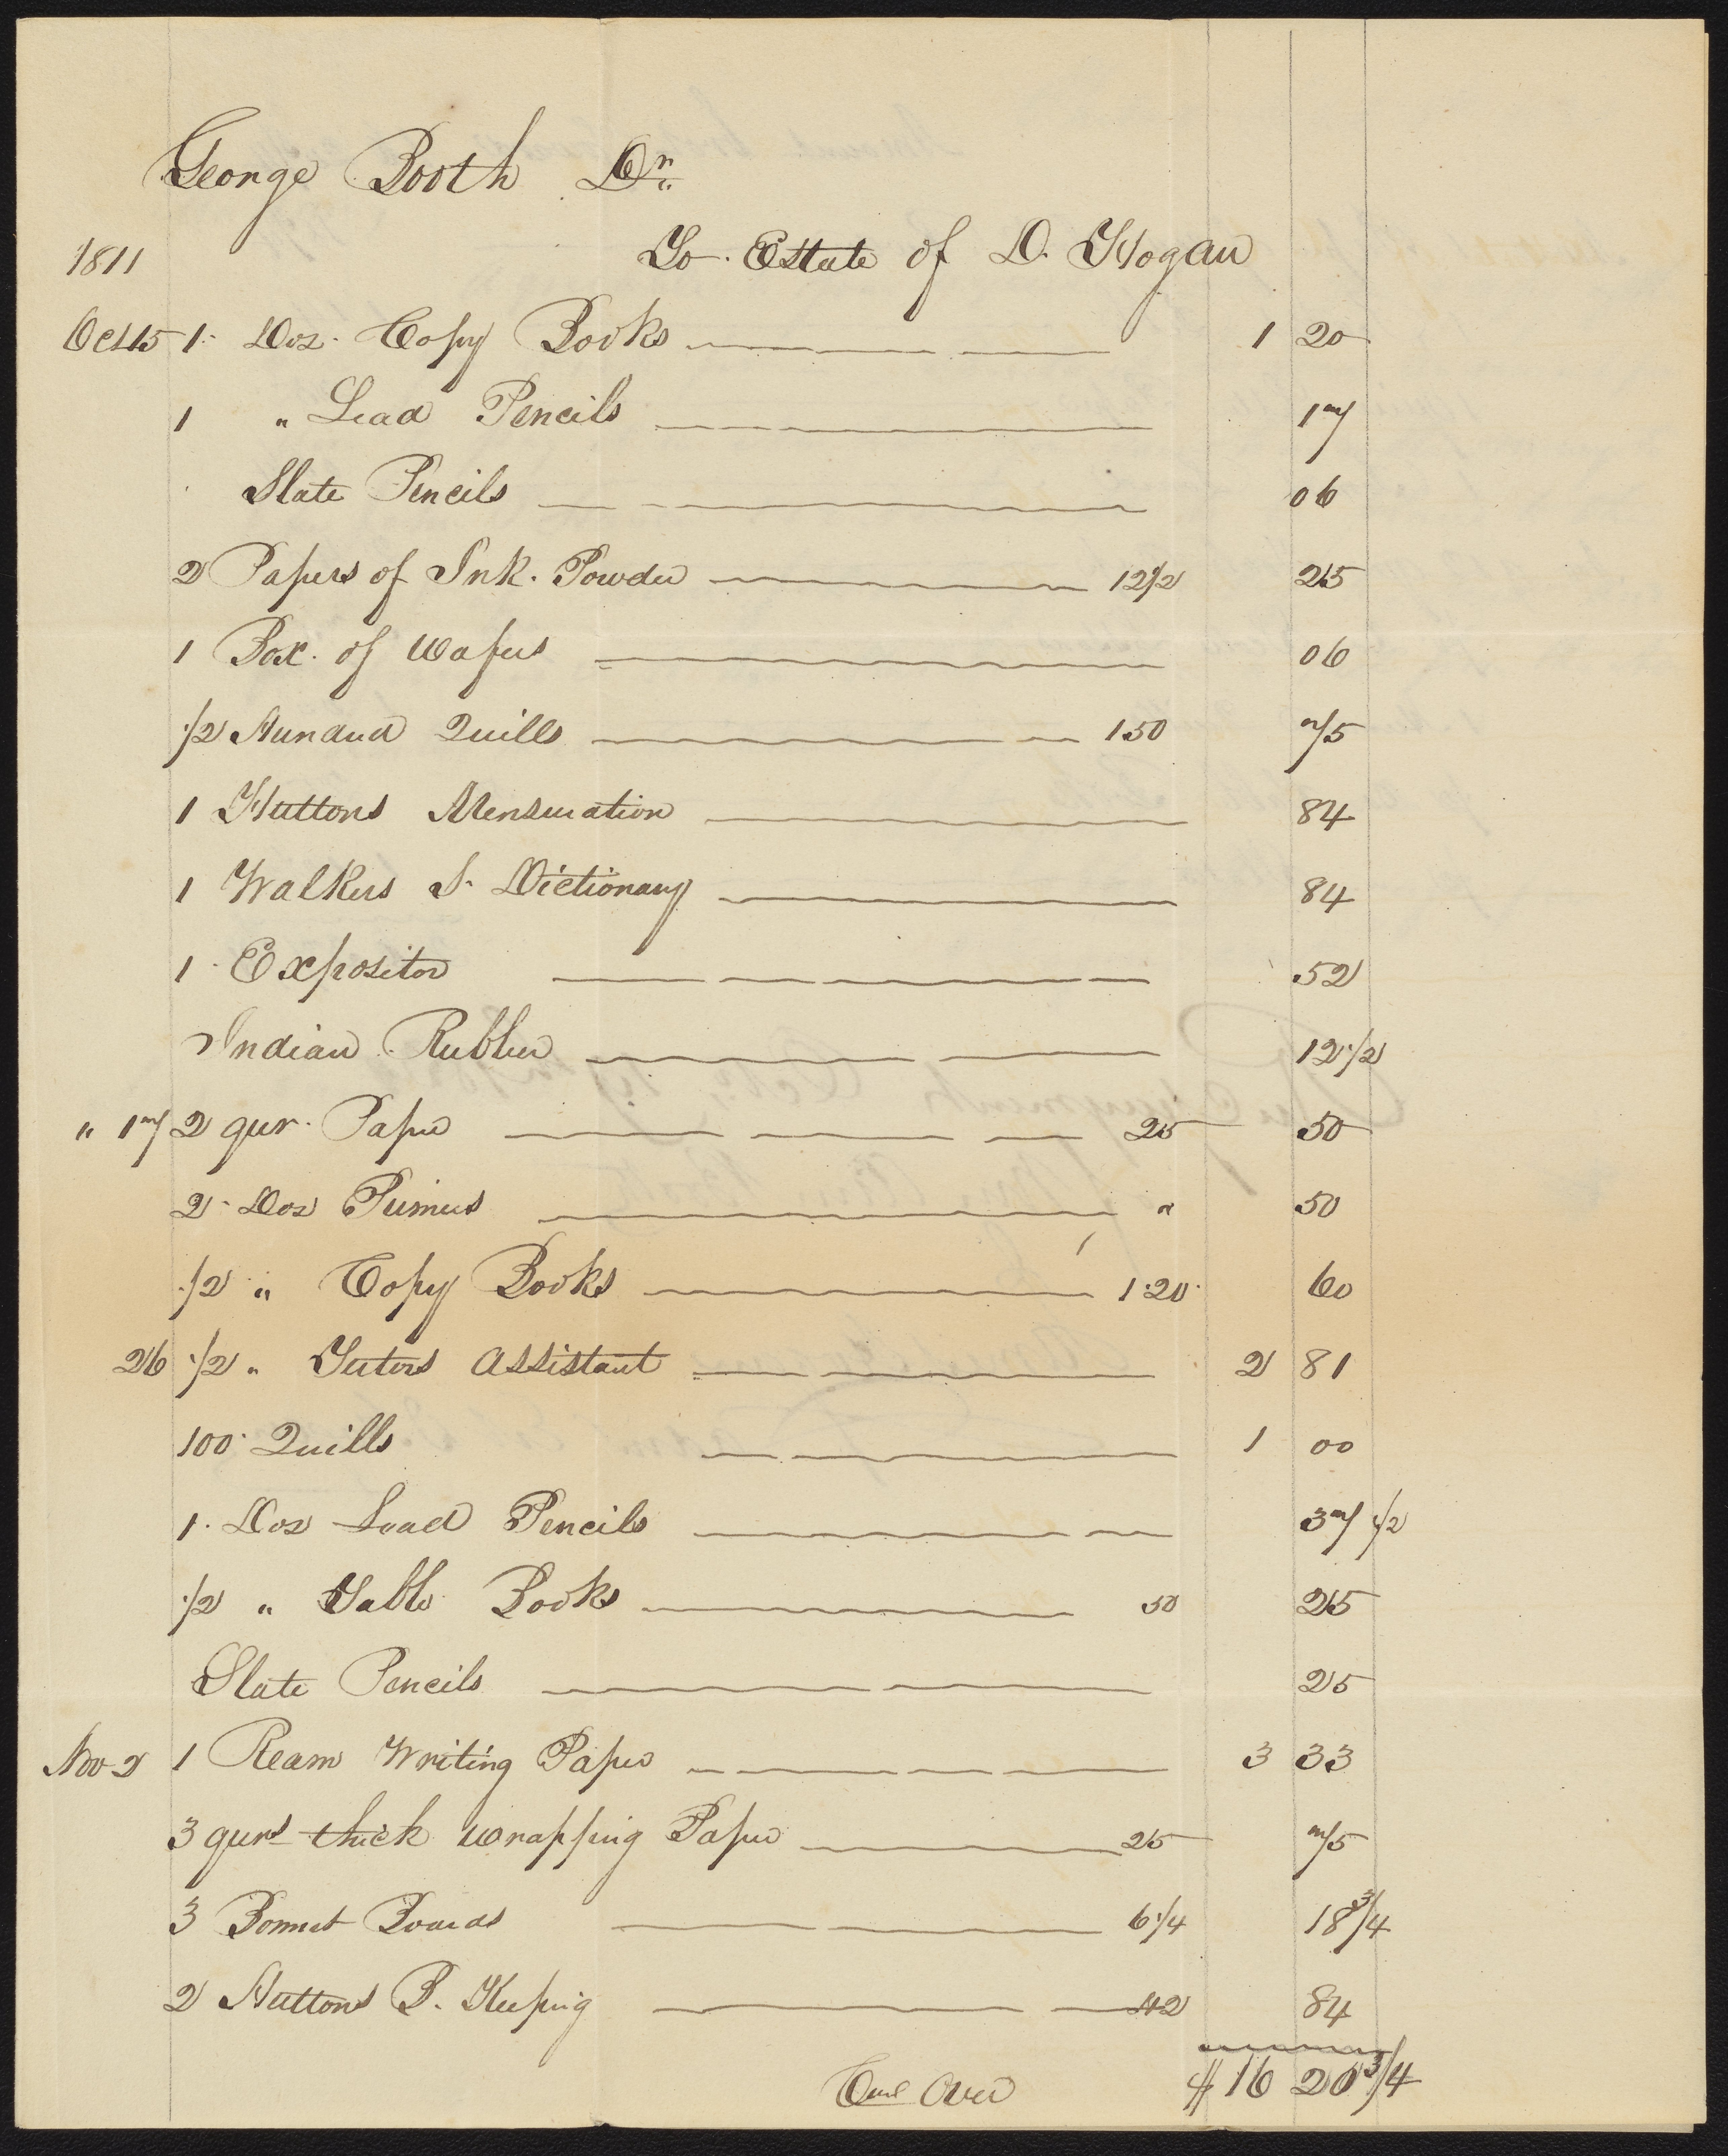 George Booth Dr.
1811 To Estate of D. Hogan
Oct 15 1 Doz. Copy Books 1 20
1 " Lead Pencils 17
Slate Pencils 06
2 Papers of Ink. Powder 12 1/2 25
1 Box. of Wafers 06
1/2 Hundred Quills 150 75
1 Huttons Mensuration 84
1 Walkers S. Dictionary 84
1 Expositor 52
Indian Rubber 12 1/2
" 17 2 qur. Paper 25 50
2 Doz Primers " 50
1/2 " Copy Books 1.20 60
26 1/2 " Tutors Assistant 2 81
100 Quills 1 00
1. Doz Lead Pencils 37 1/2
1/2 " Table Books 50 25
Slate Pencils 25
Nov 2 1 Ream Writing Paper 3 33
3 qurs thick wrapping Paper 25 75
3 Bonnet Boards 6 1/4 18 3/4
2 Huttons B. Keeping 42 84
Over $ 16 20 3/4